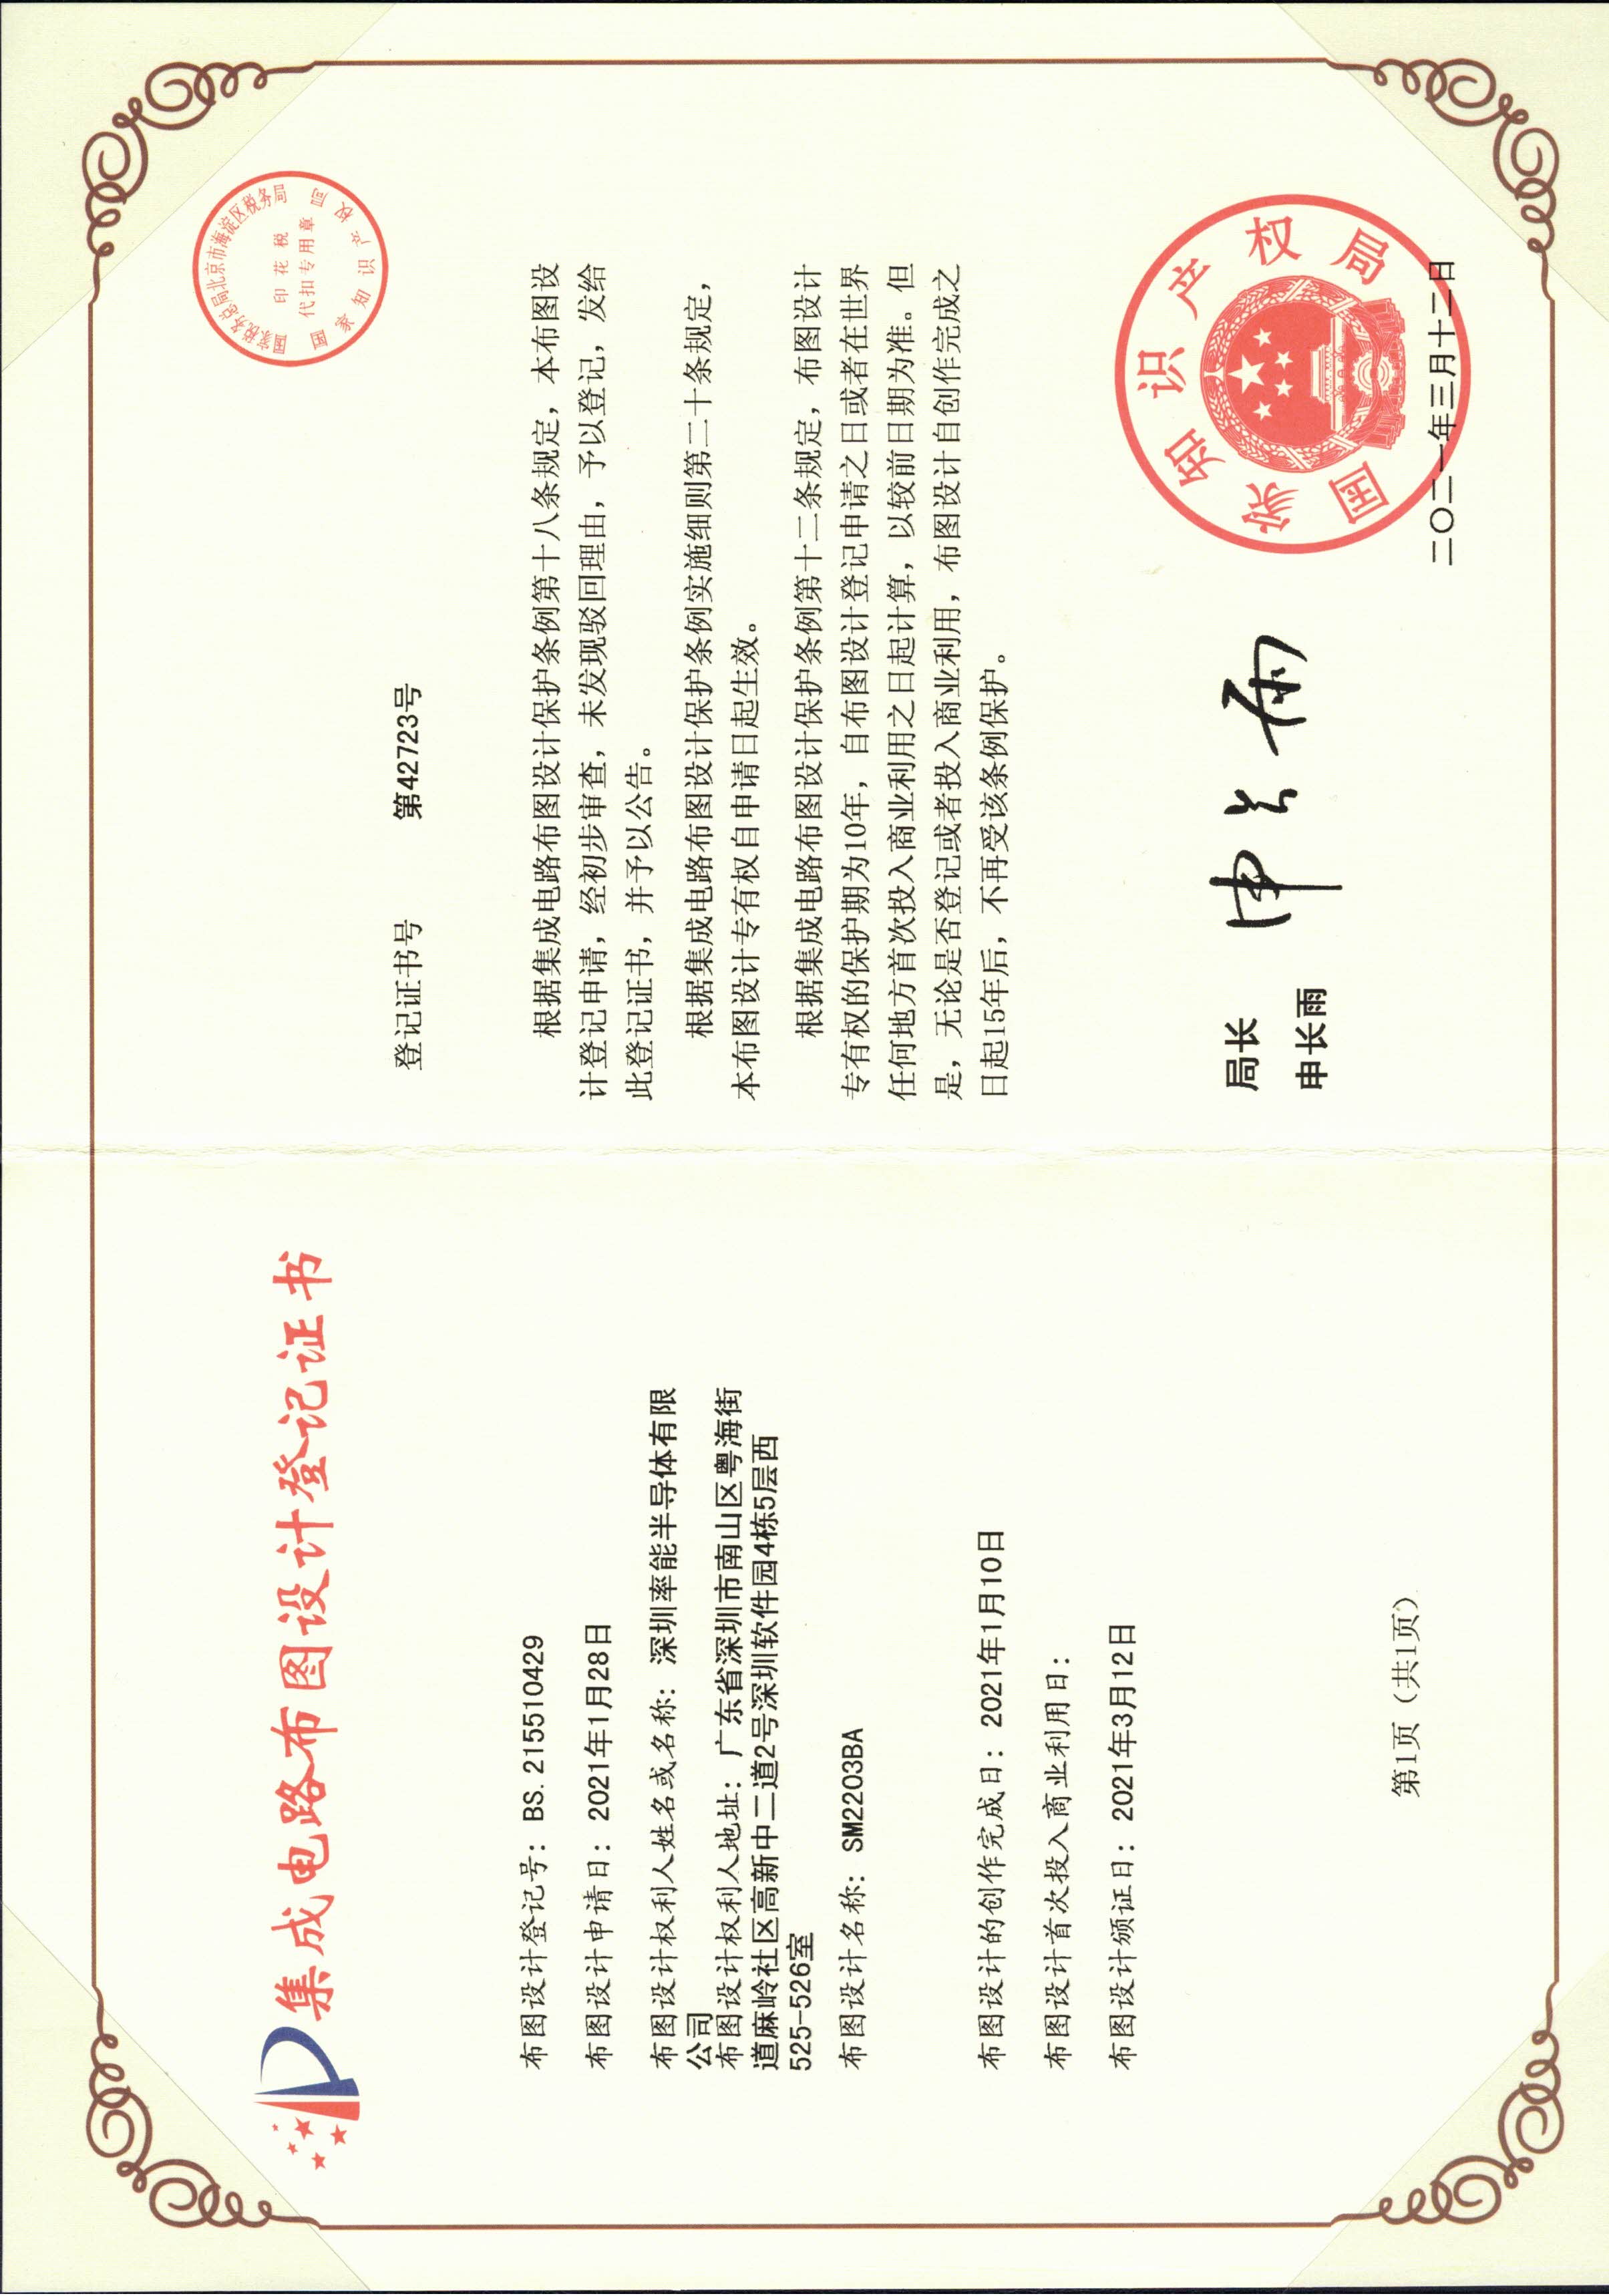 集成电路布图设计登记证书
布图设计登记号：BS.215510429
布图设计申请日：2021年1月28日
布图设计权利人姓名或名称：深圳率能半导体有限
公司
布图设计权利人地址：广东省深圳市南山区粤海街
道麻岭社区高新中二道2号深圳软件园4栋5层西
525-526室
布图设计名称：SM2203BA
布图设计的创作完成日：2021年1月10日
布图设计首次投入商业利用日：
布图设计颁证日：2021年3月12日
第1页（共1页）
国家税务总局北京市海淀区税务局
印花税
代扣专用章
国家知识产权局
登记证书号 第42723号
根据集成电路布图设计保护条例第十八条规定，本布图设
计登记申请，经初步审查，未发现驳回理由，予以登记，发给
此登记证书，并予以公告。
根据集成电路布图设计保护条例实施细则第二十条规定，
本布图设计专有权自申请日起生效。
根据集成电路布图设计保护条例第十二条规定，布图设计
专有权的保护期为10年，自布图设计登记申请之日或者在世界
任何地方首次投入商业利用之日起计算，以较前日期为准。但
是，无论是否登记或者投入商业利用，布图设计自创作完成之
日起15年后，不再受该条例保护。
局长
申长雨
申长雨
国家知识产权局
二〇二一年三月十二日